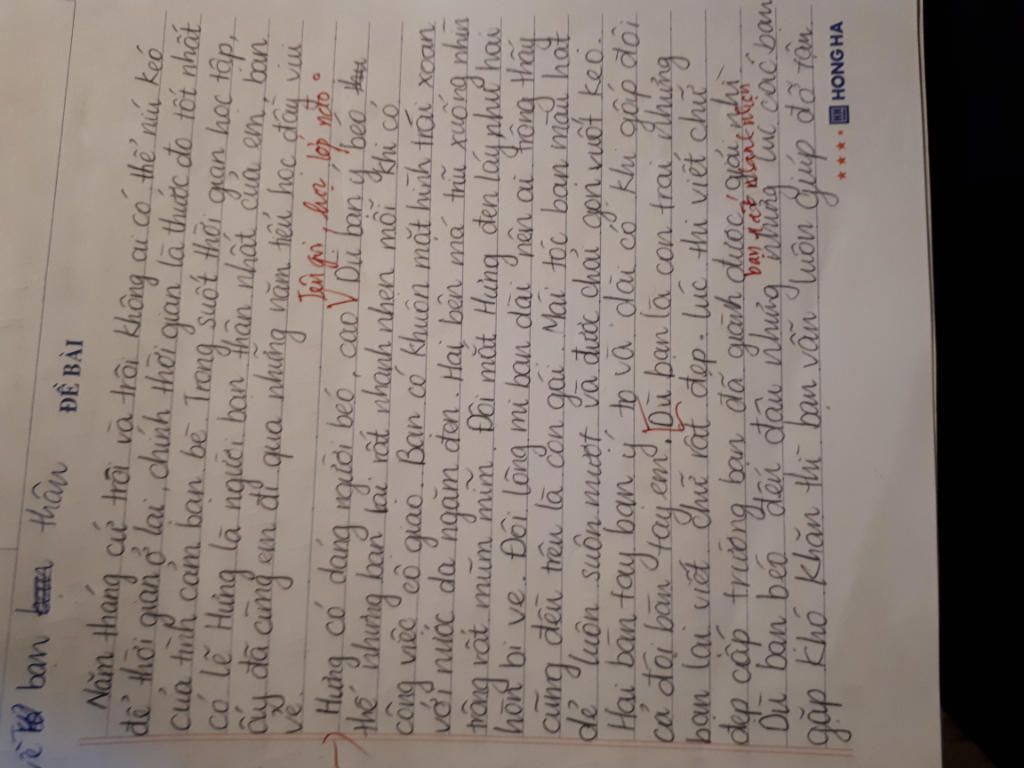 về bạn thân
ĐỀ BÀI
Năm tháng cứ trôi và trôi không ai có thể níu kéo
để thời gian ở lại, chính thời gian là thước đo tốt nhất
của tình cảm bạn bè Trong suốt thời gian học tập,
có lẽ Hưng là người bạn thân nhất của em, bạn
ấy đã cùng em đi qua những năm tiểu học đầy vui
vẻ.
Tên gì, học lớp nào.
Hưng có dáng người béo, cao Dù bạn ý béo
thế nhưng bạn lại rất nhanh nhẹn mỗi khi có
công việc cô giao. Bạn có khuôn mặt hình trái xoan
với nước da ngăm đen. Hai bên má trĩu xuống nhìn
trông rất mũm mĩm. Đôi mắt Hưng đen láy như hai
hòn bi ve. Đôi lông mi bạn dài nên ai trông thấy
cũng đều trêu là con gái. Mái tóc bạn màu hạt
dẻ luôn suôn mượt và được chải gọn vuốt keo.
Hai bàn tay bạn ý to và dài có khi gấp đôi
cả đôi bàn tay em. Dù bạn là con trai nhưng
bạn lại viết chữ rất đẹp. Lúc thi viết chữ
đẹp cấp trường bạn đã giành được giải nhì
bạn rất nhanh nhẹn
Dù bạn béo đến đâu nhưng những lúc các bạn
gặp khó khăn thì bạn vẫn luôn giúp đỡ tận
HONG HA